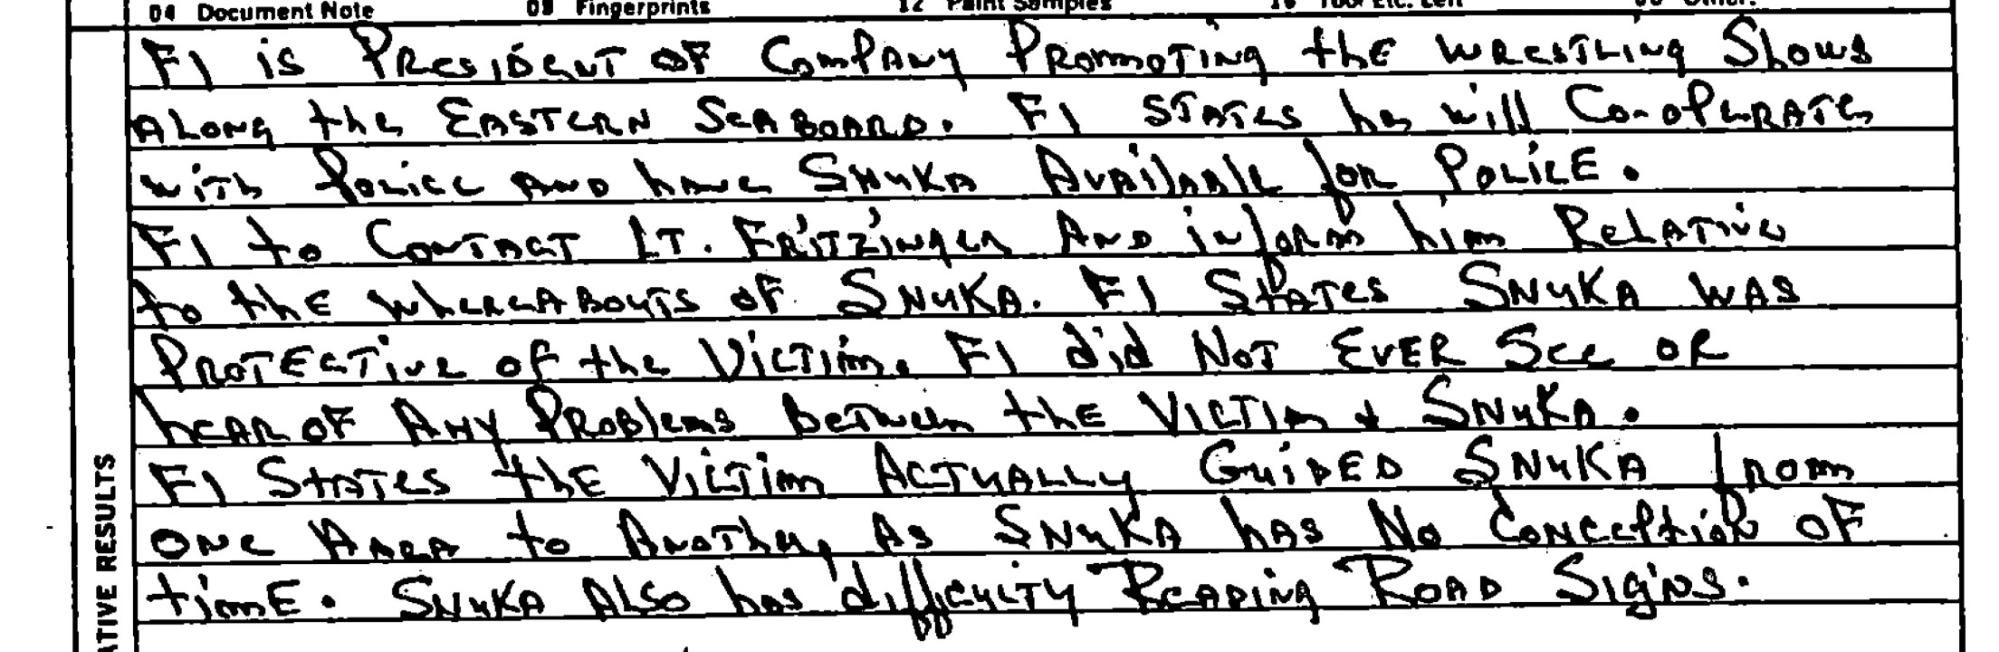 04 Document Note 05 Fingerprints 12 Paint Samples
FI is PRESIDENT OF COMPANY PROMOTING the WRESTLING Shows
ALONG the EASTERN SEABOARD. FI STATES he will CO-OPERATE
with POLICE AND have SNUKA AVAILABLE for POLICE.
FI to CONTACT LT. FRITZINGER AND inform him RELATIVE
to the WHEREABOUTS OF SNUKA. FI STATES SNUKA WAS
PROTECTIVE of the VICTIM. FI did NOT EVER SEE OR
HEAR OF ANY PROBLEMS BETWEEN the VICTIM & SNUKA.
FI STATES the VICTIM ACTUALLY GUIDED SNUKA from
ONE AREA to ANOTHER, AS SNUKA HAS NO CONCEPTION OF
TIME. SNUKA ALSO has difficulty READING ROAD SIGNS.
ATIVE RESULTS